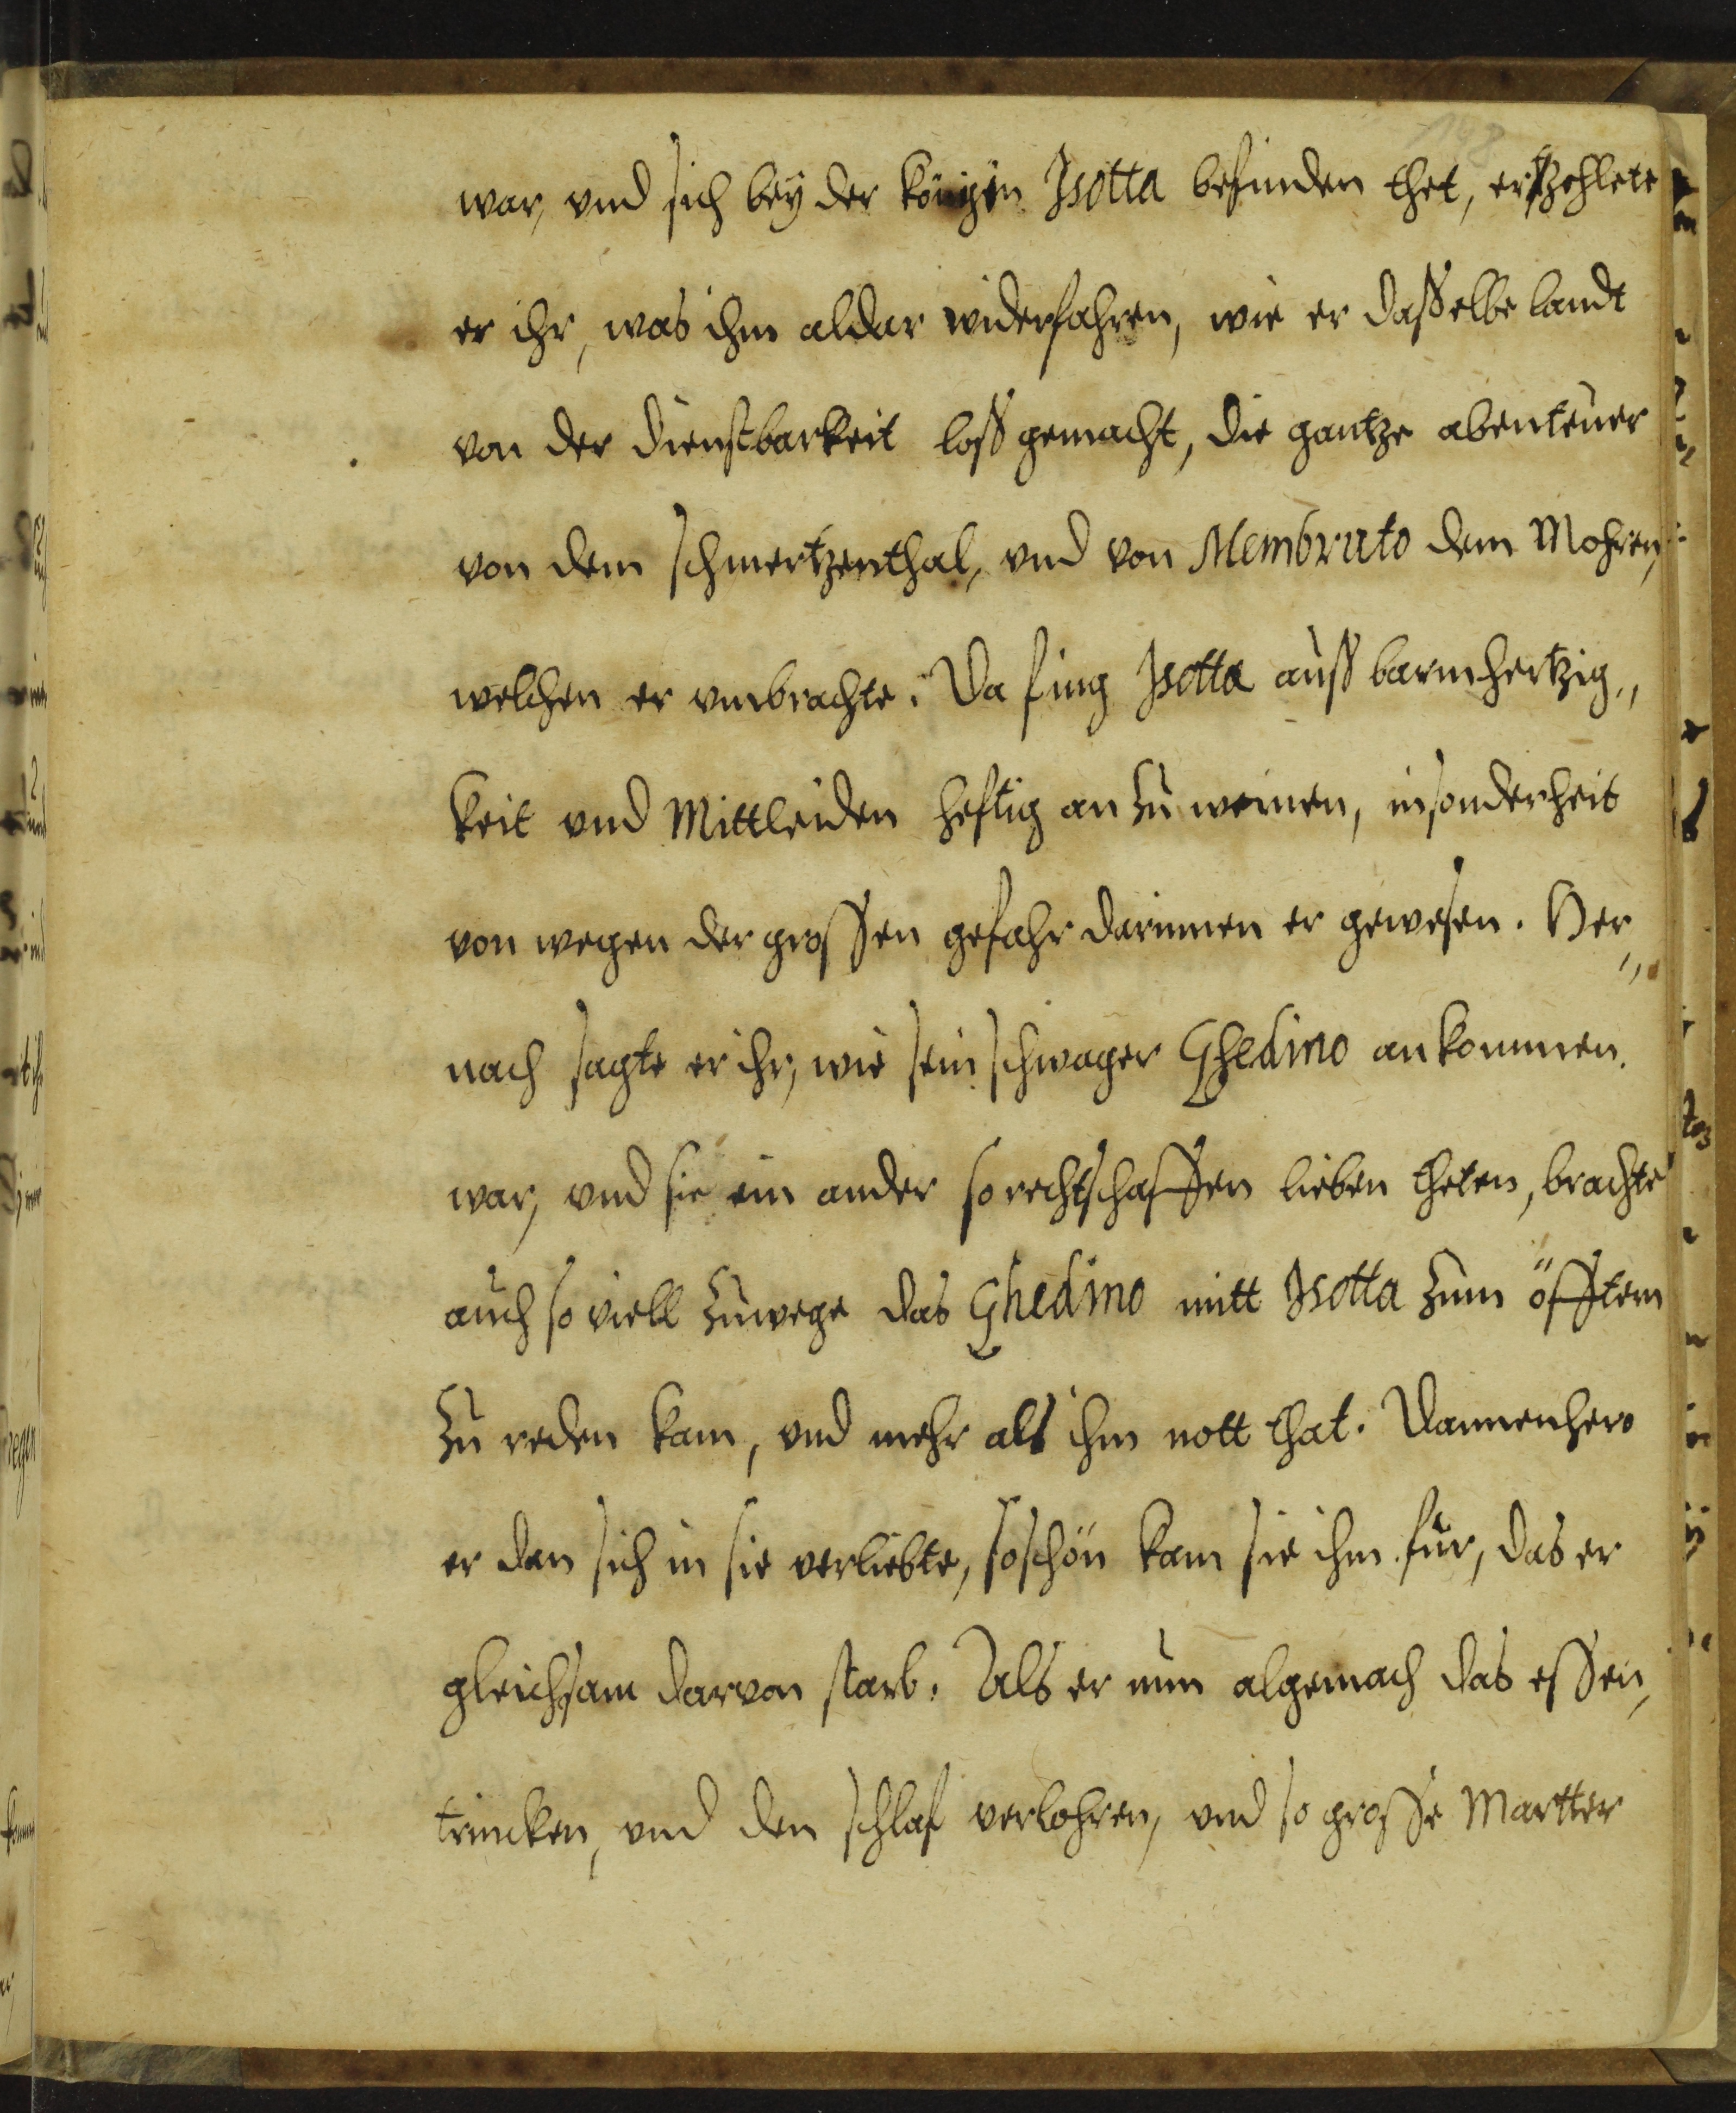 148
war, vnd sich beÿ der königin Isotta befinden thet, erzehlete
er ihr, was ihm aldar widerfahren, wie er dasselbe landt
von der dienstbarkeit loss gemacht, die gantze abenteuer
von dem schmertzenthal, vnd von Membruto dem Mohren,
welchen er vmbrachte. Da fing Isotta auss barmhertzig„
keit vnd Mittleiden hefftig an zu weinen, insonderheit
von wegen der grossen gefahr darinnen er gewesen. Her„
nach sagte er ihr, wie sein schwager Ghedino ankommen
war, vnd sie ein ander so rechtschaffen lieben theten, brachte
auch so viell zuwege das Ghedino mitt Isotta zum öfftern
zu reden kam, vnd mehr als ihm nott that. Dannenhero
er den sich in sie verliebte, so schön kam sie ihm für, das er
gleichsam darvon starb. Als er nun algemach das essen,
trincken, vnd den schlaf verlohren, vnd so grosse Martter